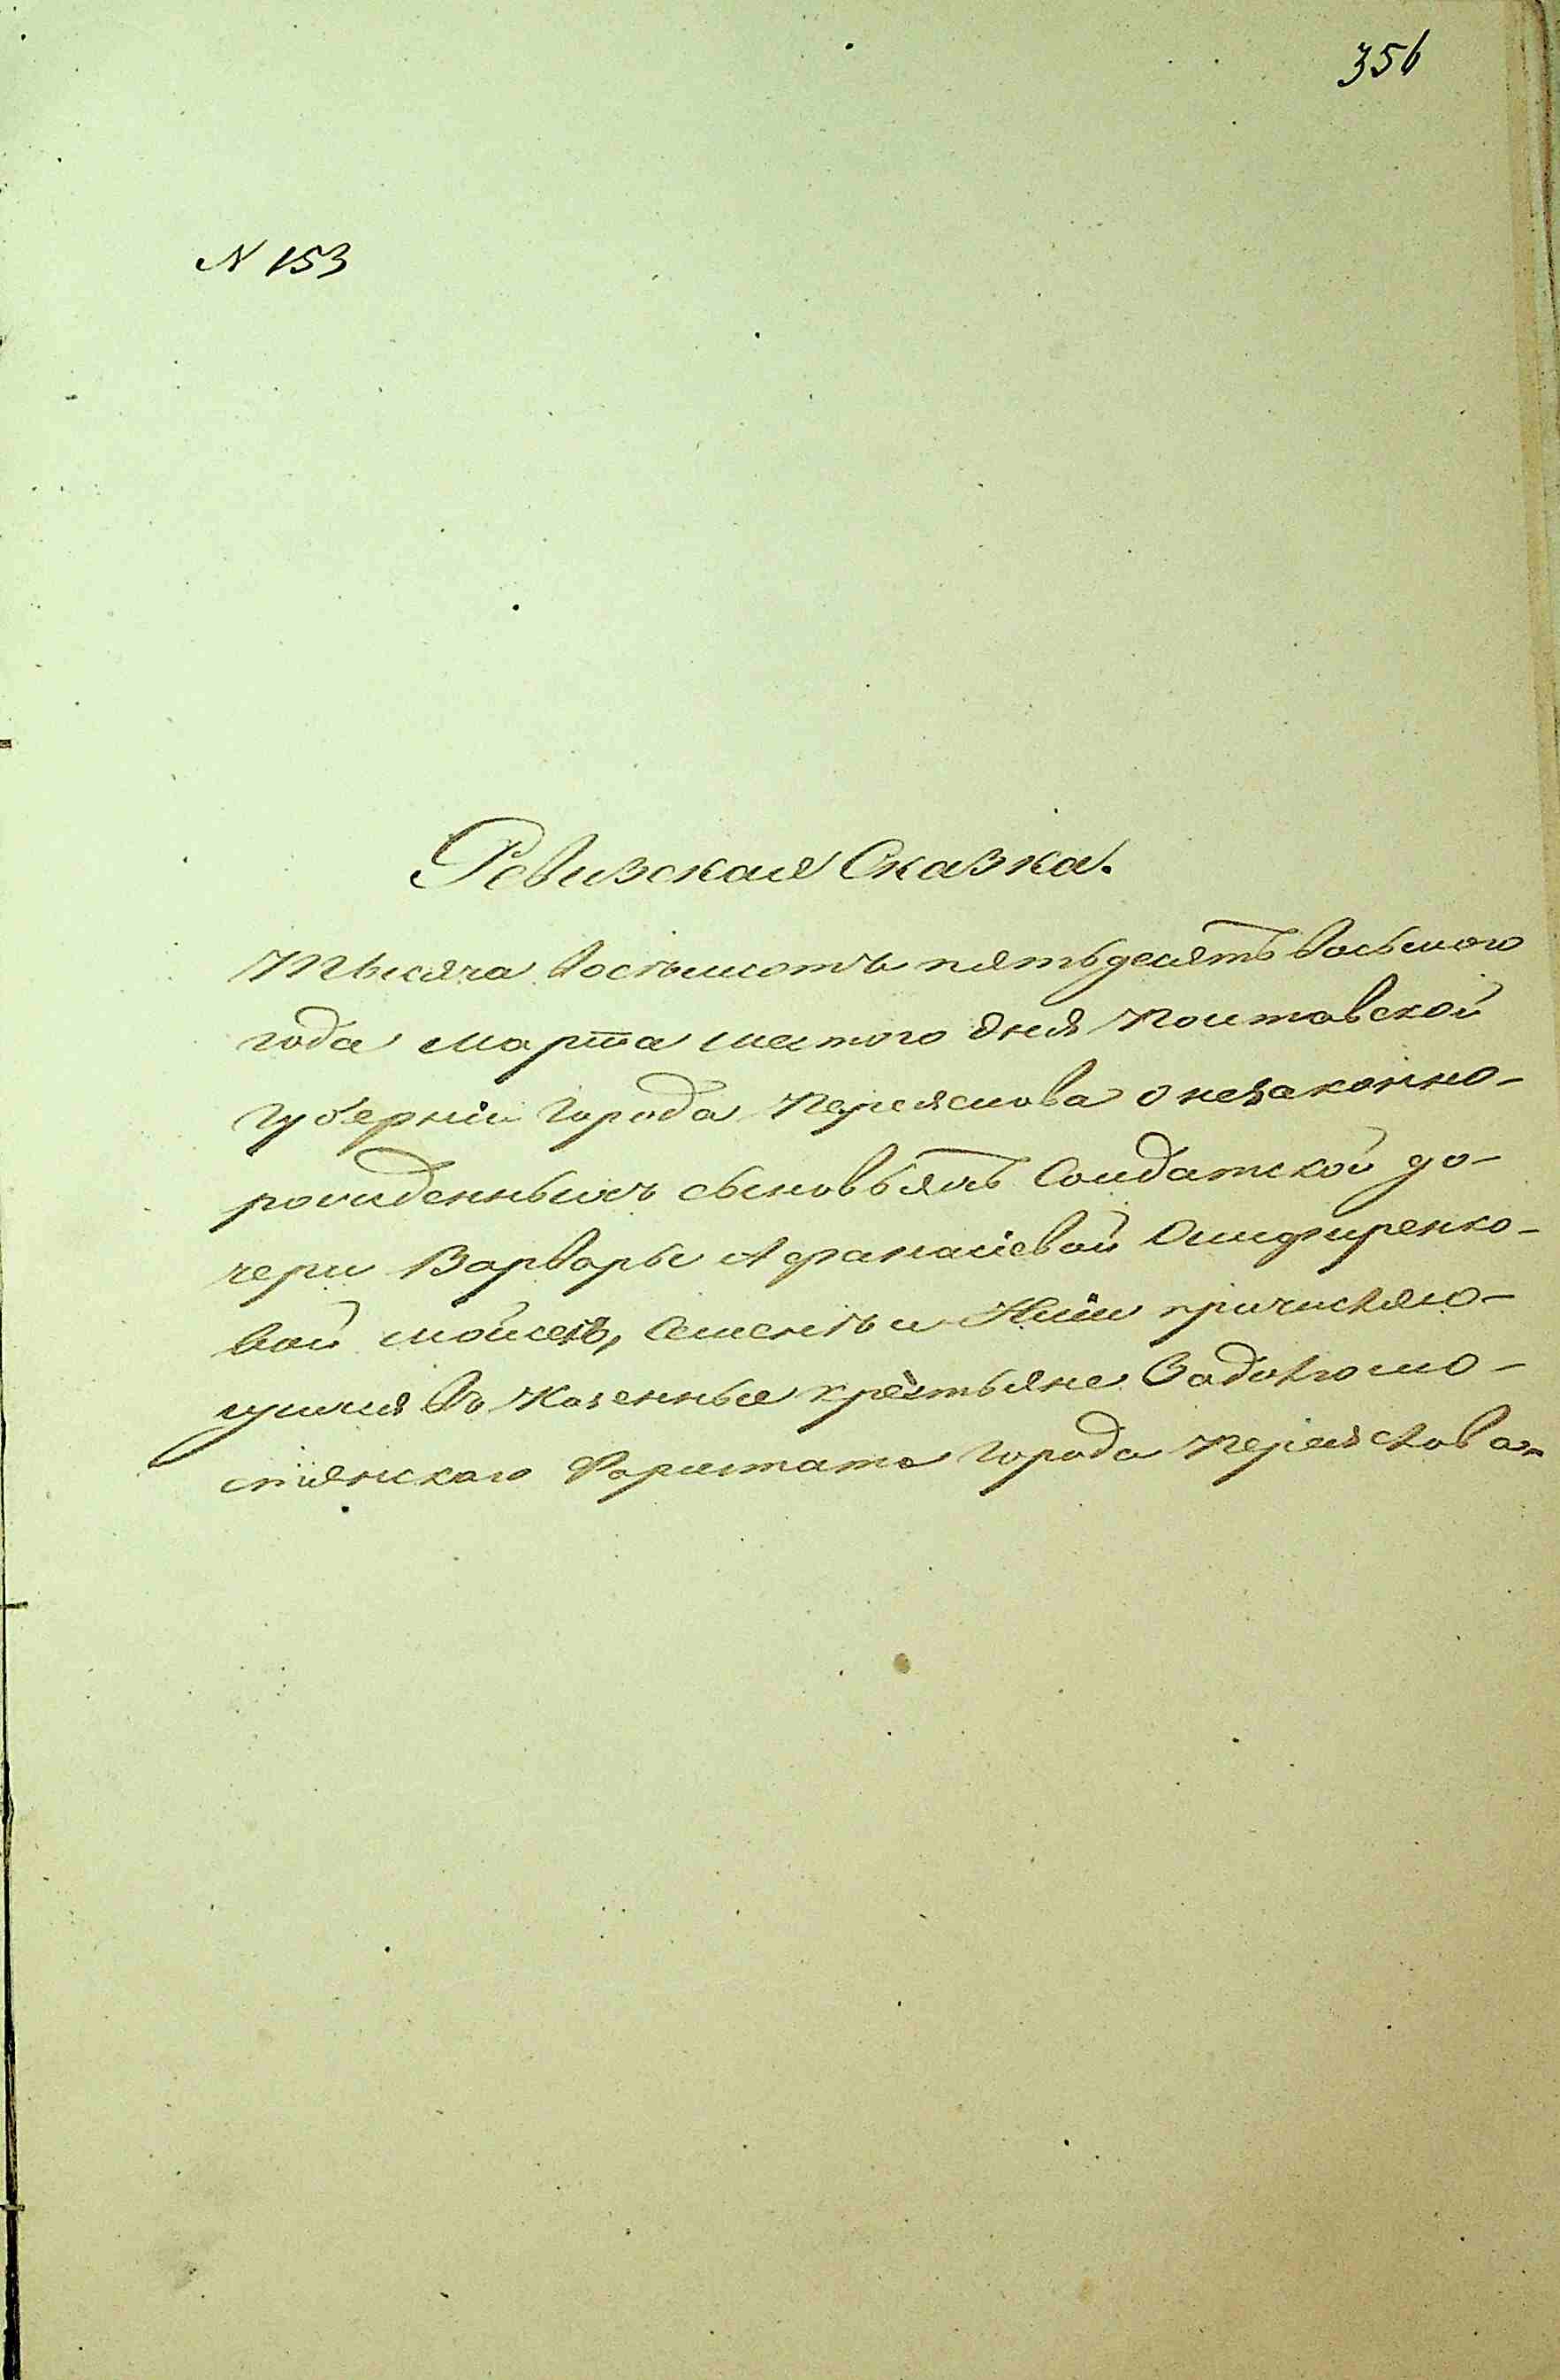 356
N 153
Ревизская Сказка.
Тысяча восемьсотъ пятьдесятъ восьмого
года марта шестого дня Полтавской
губерніи города Переяслова о незаконно-
рожденныхъ сыновьяхъ Солдатской до-
чери Варвары Афанасіевой
вой Мойсей, Семенъ и причисляю-
щихся въ Казенные крестьяне Подолю
города Переяслова